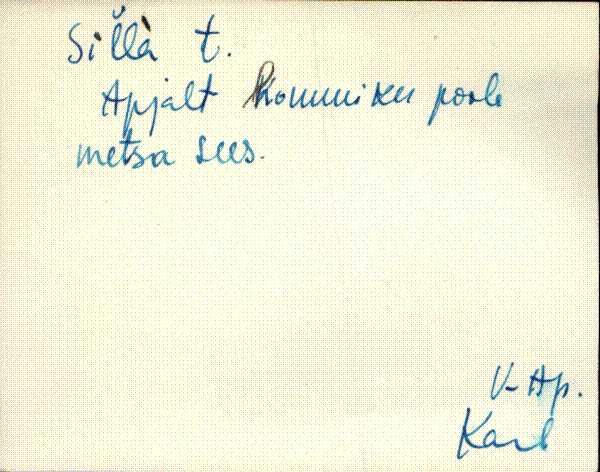 Sil̆l̆à t.
Apjalt Kommiku poole
metsa sees.
V-Ap.
Karl